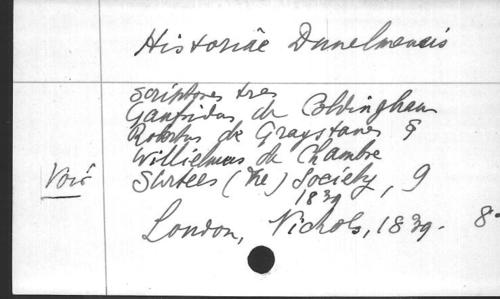 Historiae Dunelmensis
scriptores tres
Gaufridus de Coldingham
Robertus de Graystanes &
Willielmus de Chambre
Voir Surtees (The) Society, 9
1839
London, Nichols, 1839. 8°